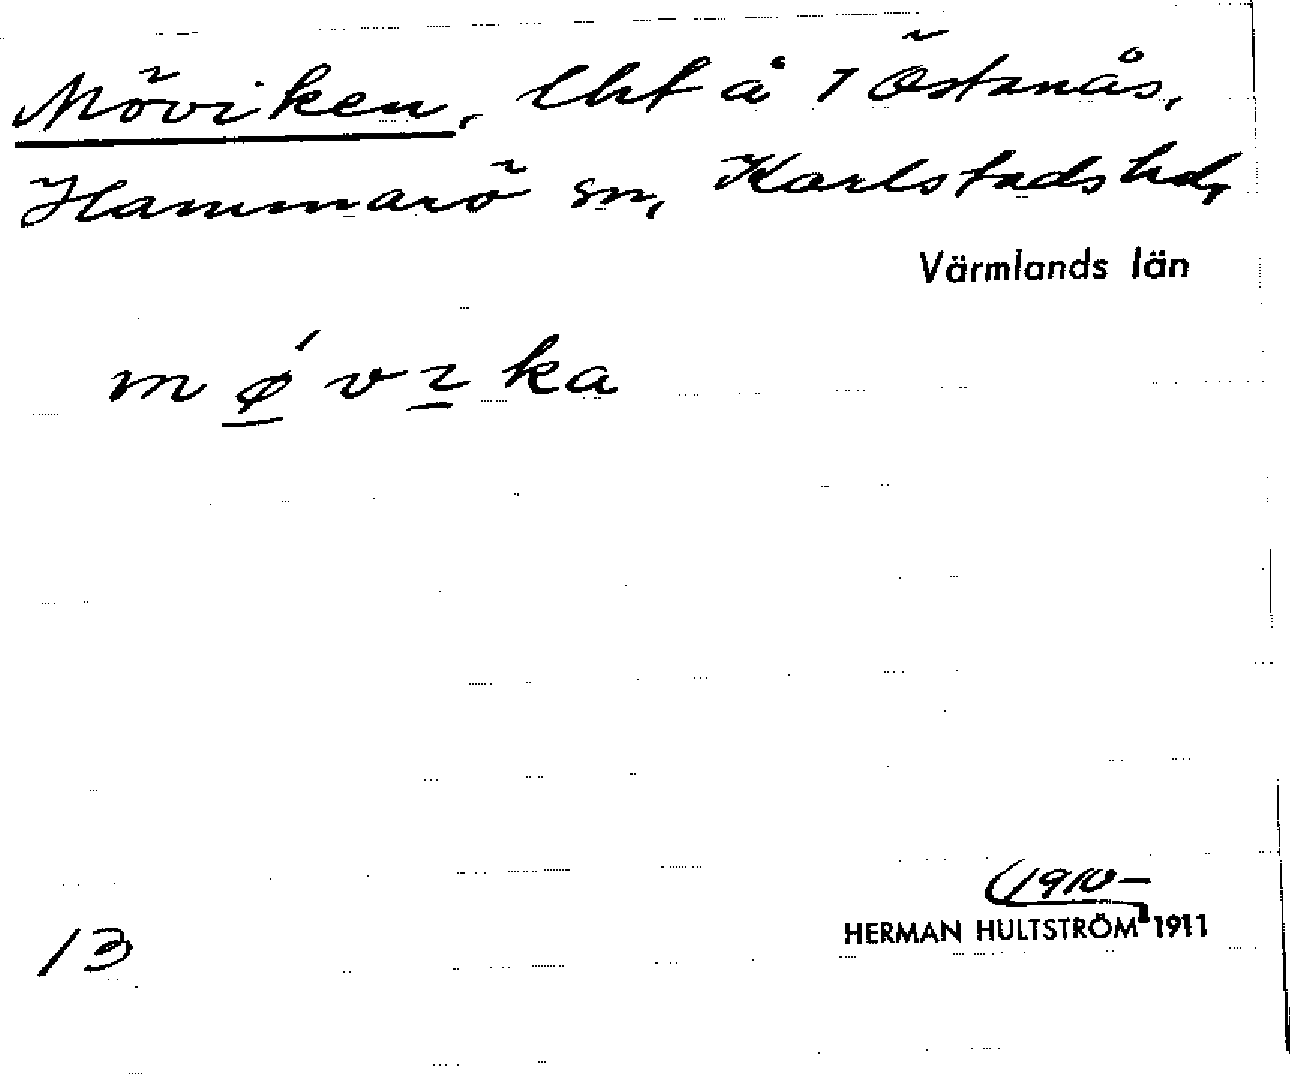 Möviken, lht å 1 Östanås,
Hammarö sn, Karlstads hd,
Värmlands län
mǿvıka
(1910–
HERMAN HULTSTRÖM 1911
13